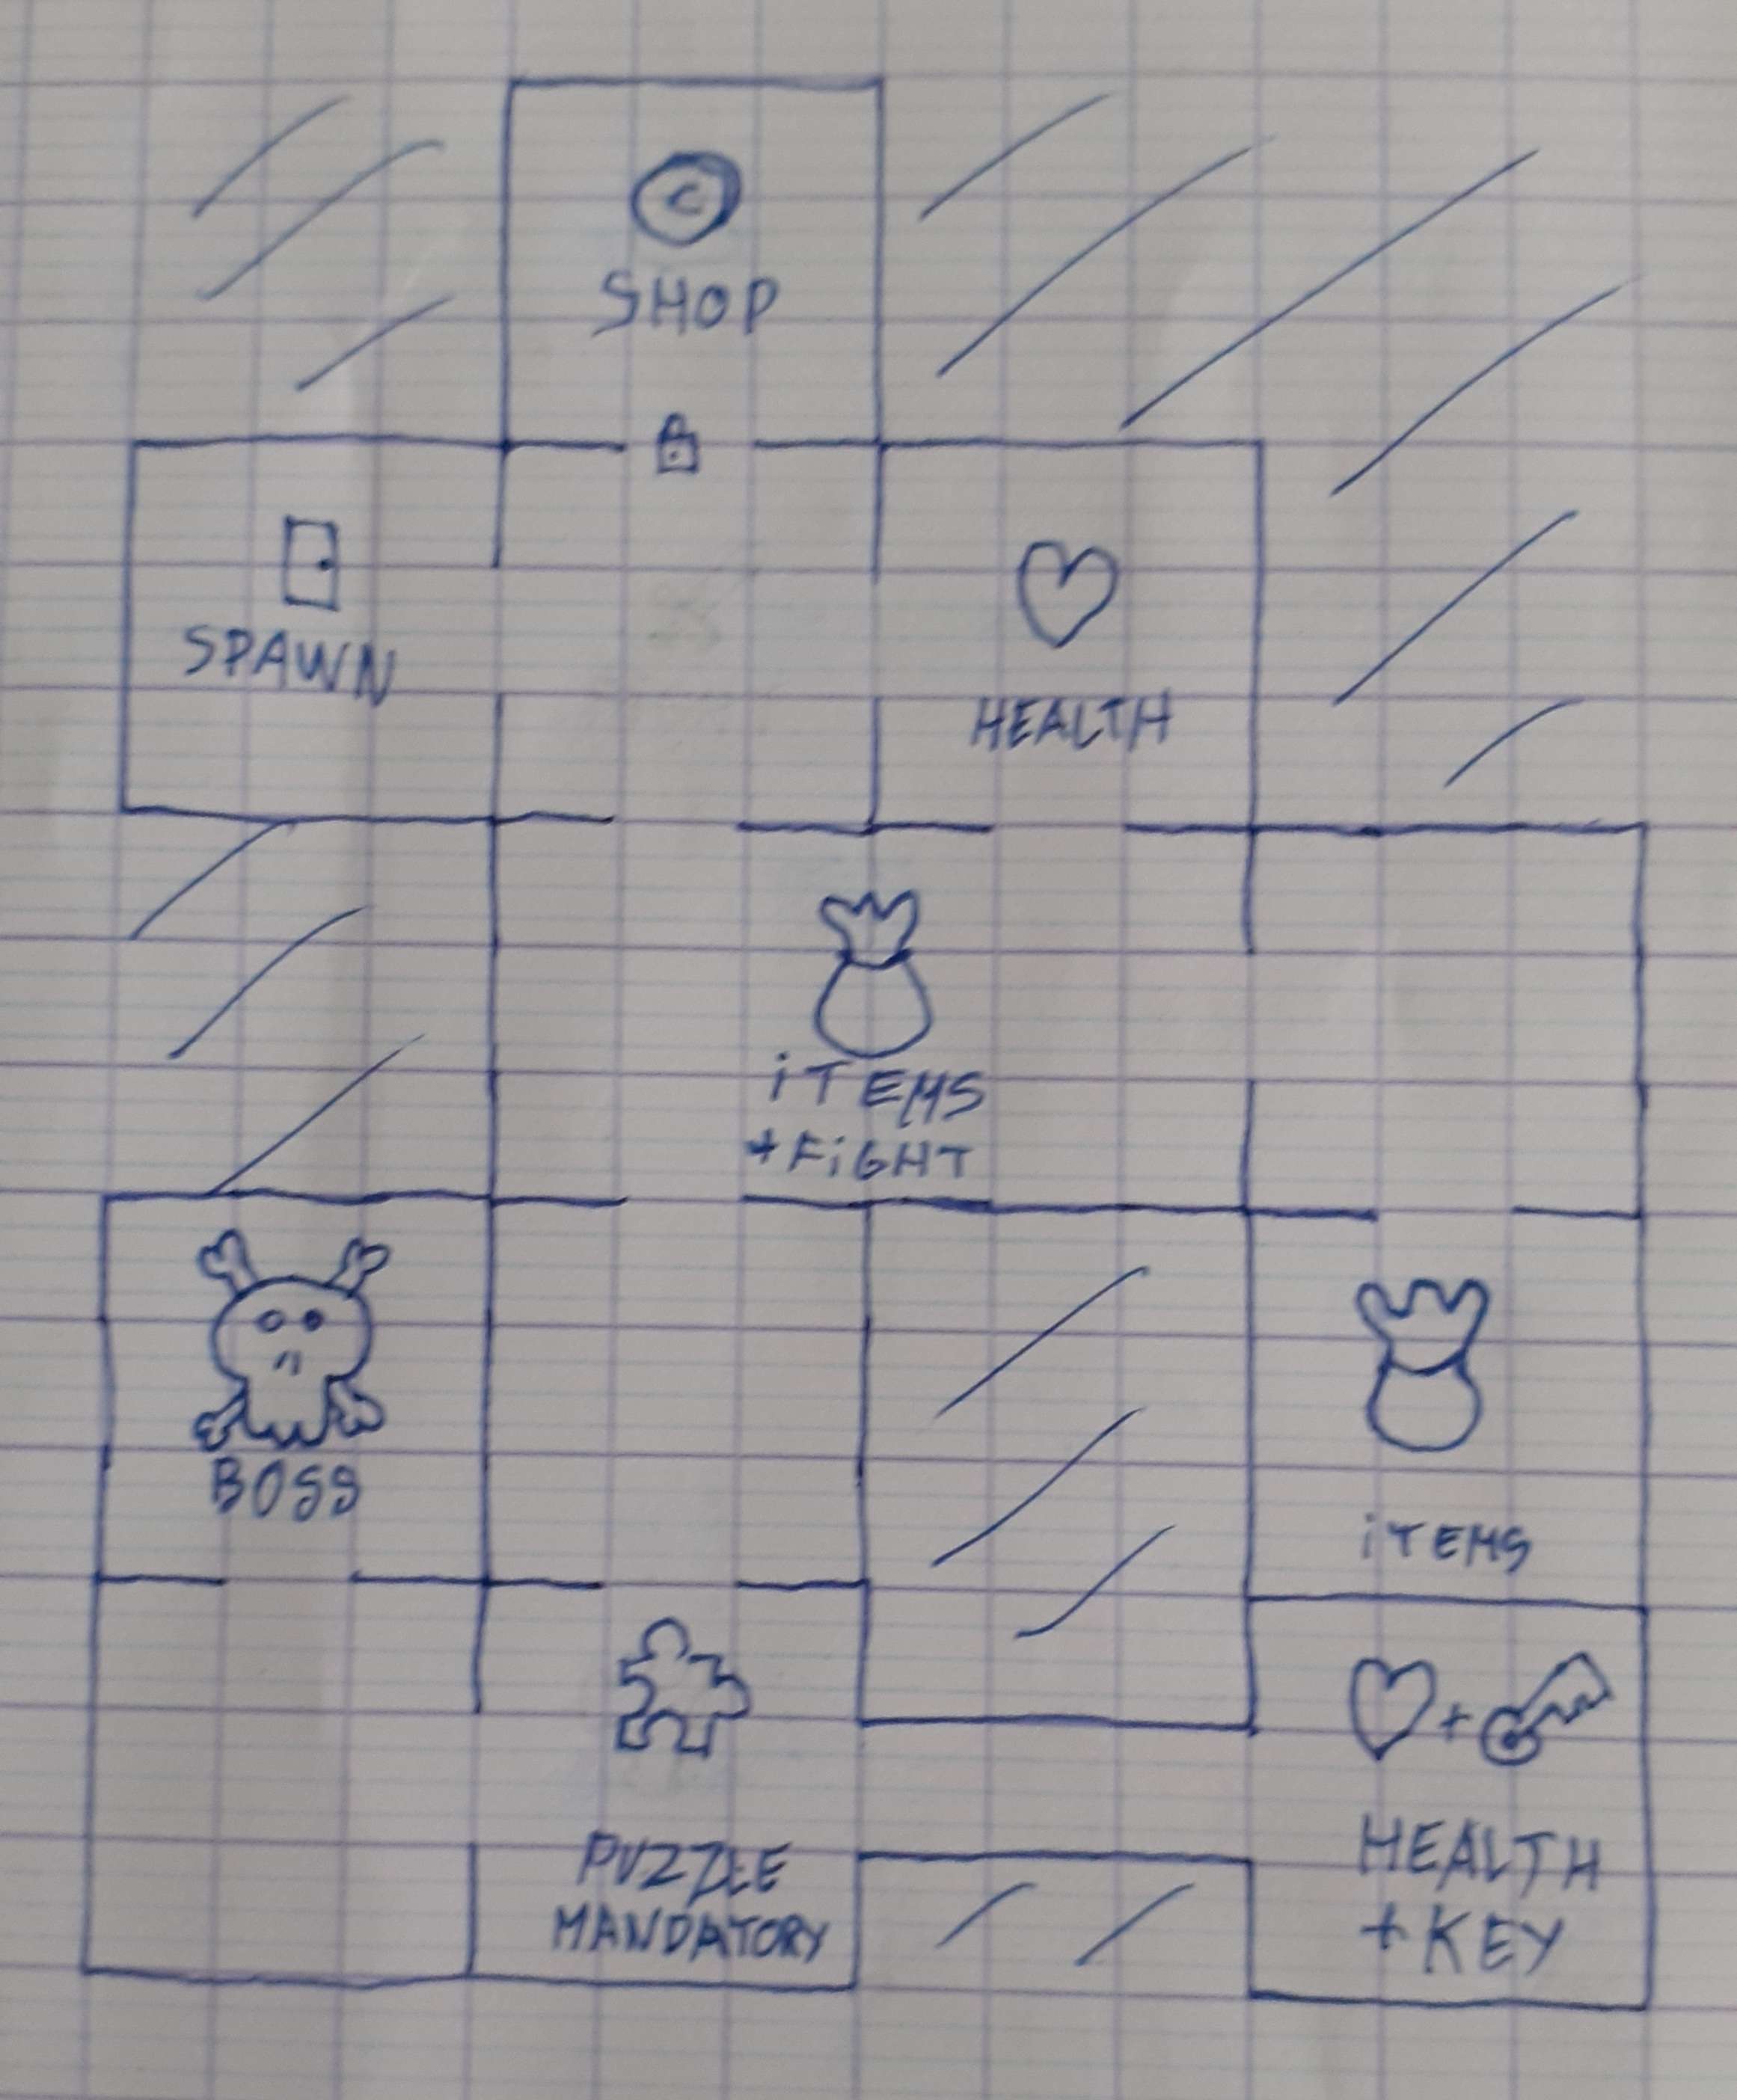 C
SHOP
SPAWN
HEALTH
iTEMS
+FiGHT
BOSS
iTEMS
PUZZLE
MANDATORY
+
HEALTH
+KEY